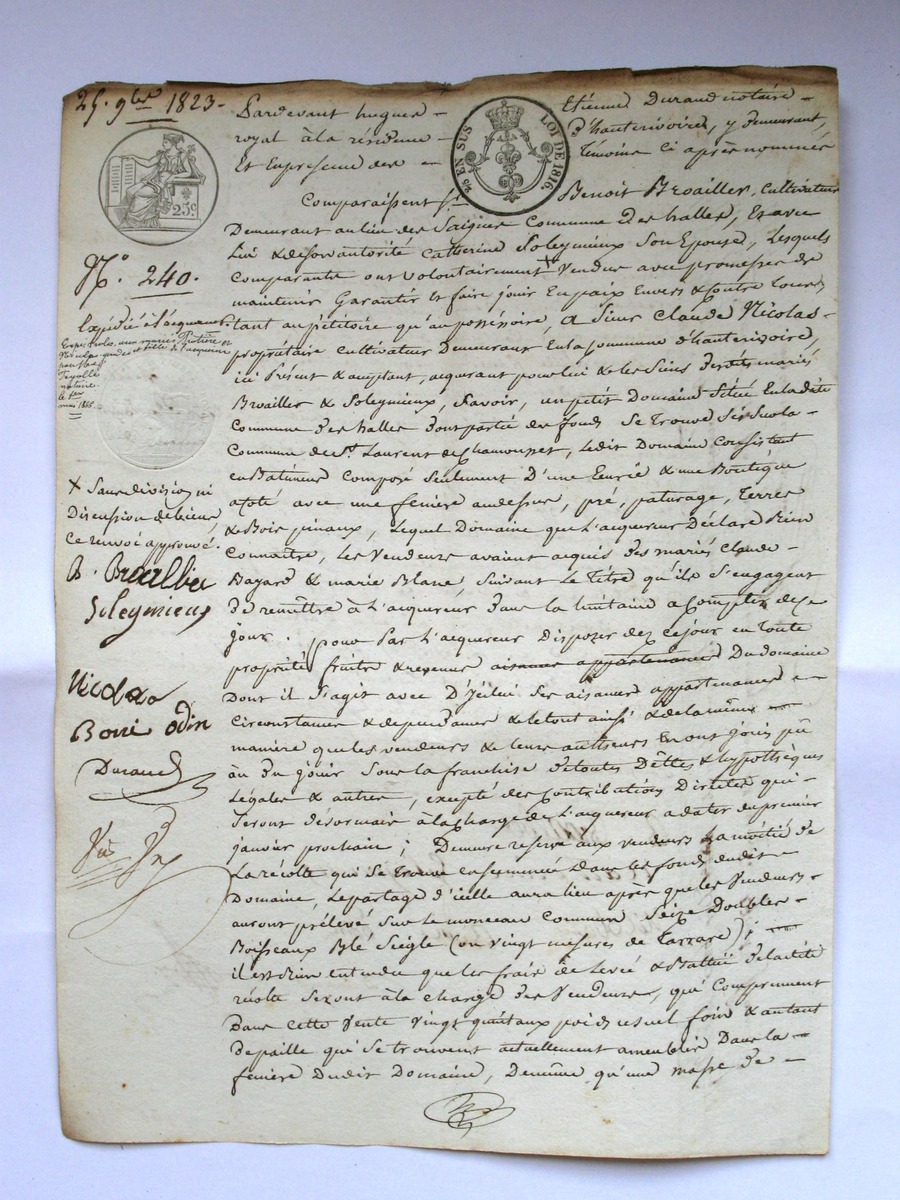 25. 9bre 1823 -
Pardevant hugues Etienne Durand notaire -
royal à la résidence d'hauterivoire, y demeurant,
Et En présence des - témoins ci après nommés
2/10 EN SUS LOI DE 1816.
25c
Comparaissent Benoit Broailler, cultivateur
Demeurant au lieu des Saignes Commune des halles, Et avec
lui & de son autorité Catherine Soleymieux Son Epouse, Lesquels
Comparants ont volontairement + Vendu avec promesses de
maintenir Garantir Et faire jouir En paix Envers & Contre tous
tant au pétitoire qu'au possessoire, a Sieur Claude Nicolas -
propriétaire cultivateur Demeurant En la Commune d'hauterivoire,
ici Présent & acceptant, acquérant pour lui & les Siens Desdits mariés
Broailler & Soleymieux, Savoir, un petit Domaine Situé En la dite
Commune des halles dont partie des fonds Se trouve Sis Sur la -
Commune de St. Laurent de Chamousset, Ledit Domaine Consistant
en Batiments Composé Seulement D'une Ecurie & une Boutique
a coté avec une fenière au dessus, pré, paturage, Terres
& Bois pinaux, Lequel Domaine que L'acquereur Déclare Bien
Connaitre, Les Vendeurs avaient acquis des mariés Claude -
Bayard & marie Blanc, Suivant Le Titre qu'ils S'engagent
De remettre à L'acquereur Dans la huitaine a Compter de ce
jour. / pour Par L'acquereur Disposer dez ce jour en Toute
propriété fruits & revenus aisances appartenances Du domaine
Dont il S'agit avec D'Icelui Ses aisances appartenances -
Circonstances & dependances & le tout ainsi & de la même -
manière que les vendeurs & leurs autheurs En ont joui pu
ou du jouir Sous la franchise de toutes Dêttes & hypothèques
Légales & autres, excepté des Contributions Directes qui -
Seront désormais à la charge de L'acquereur a dater du premier
janvier prochain; Demeure réservé aux vendeurs La moitié de
La récolte qui Se trouve ensemencée Dans les fonds dudit -
Domaine, Le partage d'icelle aura lieu après que les Vendeurs -
auront prélevé Sur le monceau Commun Seize Doubles -
Boisseaux Blé Seigle (ou vingt mesures de Tarrare); -
il est Bien entendu que les frais de Levée & Battue de la dite
récolte Seront à la charge des Vendeurs, qui Comprennent
Dans Cette Vente Vingt quintaux poids usuel foin & autant
de paille qui Se trouvent actuellement ameublés Dans la -
fenière Dudit Domaine, De même qu'une masse de -
N.o 240.
Expédié à l'acquereur
notaire
+ Sans division ni
Discussion de biens,
Ce renvoi approuvé.
B. Broallier
Soleymieux
Nicolas
Boiri Odin
Durand